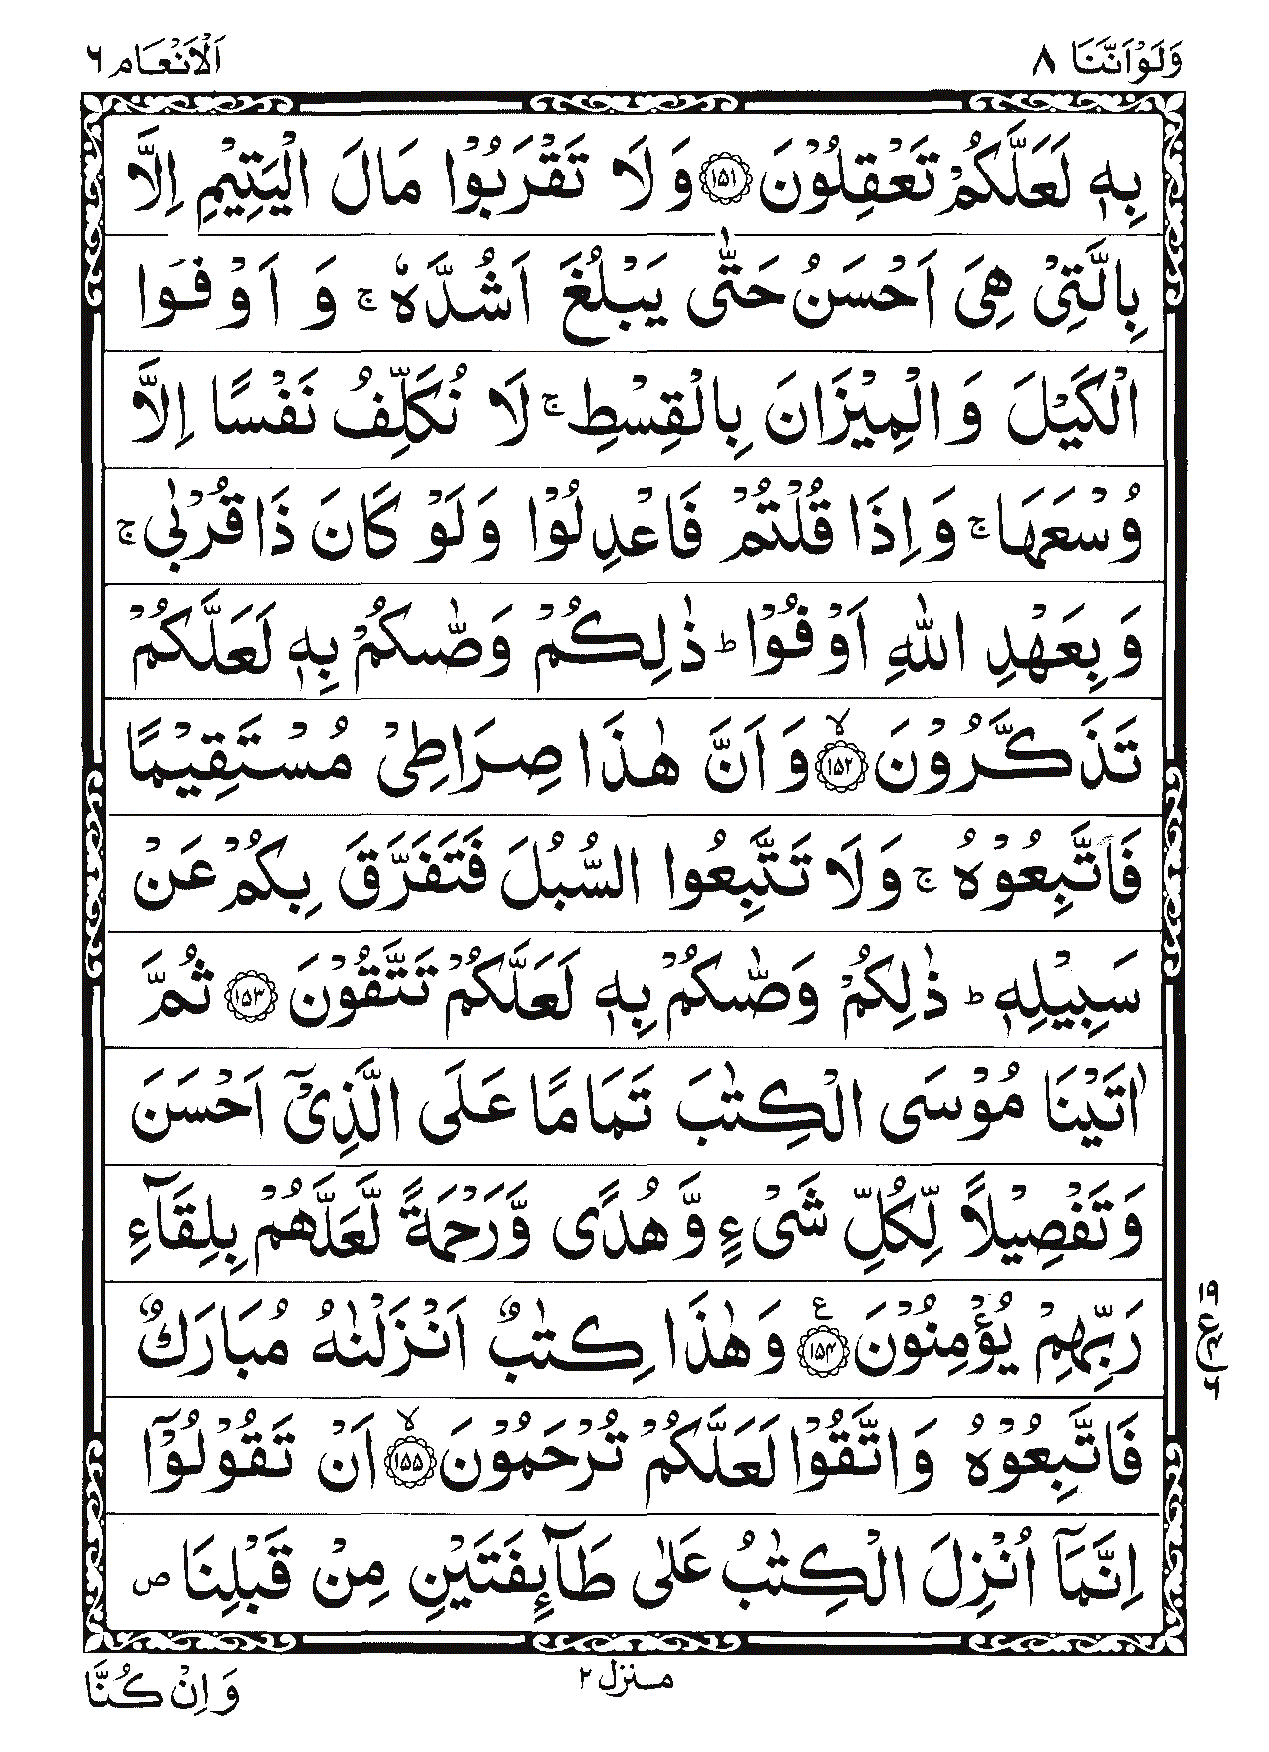 وَلَوْاَنَّنَا ٨
اَلْاَنْعَام ٦
بِهٖ لَعَلَّكُمْ تَعْقِلُوْنَ ١٥١ وَ لَا تَقْرَبُوْا مَالَ الْيَتِيْمِ اِلَّا
بِالَّتِيْ هِيَ اَحْسَنُ حَتّٰى يَبْلُغَ اَشُدَّهٗ ج وَ اَوْفُوا
الْكَيْلَ وَ الْمِيْزَانَ بِالْقِسْطِ ج لَا نُكَلِّفُ نَفْسًا اِلَّا
وُسْعَهَا ج وَ اِذَا قُلْتُمْ فَاعْدِلُوْا وَلَوْ كَانَ ذَا قُرْبٰى ج
وَ بِعَهْدِ اللّٰهِ اَوْفُوْا ط ذٰلِكُمْ وَصّٰىكُمْ بِهٖ لَعَلَّكُمْ
تَذَكَّرُوْنَ ١٥٢ لا وَ اَنَّ هٰذَا صِرَاطِيْ مُسْتَقِيْمًا
فَاتَّبِعُوْهُ ج وَ لَا تَتَّبِعُوا السُّبُلَ فَتَفَرَّقَ بِكُمْ عَنْ
سَبِيْلِهٖ ط ذٰلِكُمْ وَصّٰىكُمْ بِهٖ لَعَلَّكُمْ تَتَّقُوْنَ ١٥٣ ثُمَّ
اٰتَيْنَا مُوْسَى الْكِتٰبَ تَمَامًا عَلَى الَّذِيْٓ اَحْسَنَ
وَتَفْصِيْلًا لِّكُلِّ شَيْءٍ وَّهُدًى وَّرَحْمَةً لَّعَلَّهُمْ بِلِقَآءِ
رَبِّهِمْ يُؤْمِنُوْنَ ١٥٤ ع وَهٰذَا كِتٰبٌ اَنْزَلْنٰهُ مُبٰرَكٌ
١٩
ع
٦
فَاتَّبِعُوْهُ وَاتَّقُوْا لَعَلَّكُمْ تُرْحَمُوْنَ ١٥٥ لا اَنْ تَقُوْلُوْٓا
اِنَّمَآ اُنْزِلَ الْكِتٰبُ عَلٰى طَآئِفَتَيْنِ مِنْ قَبْلِنَا ص
منزل ٢
وَ اِنْ كُنَّا